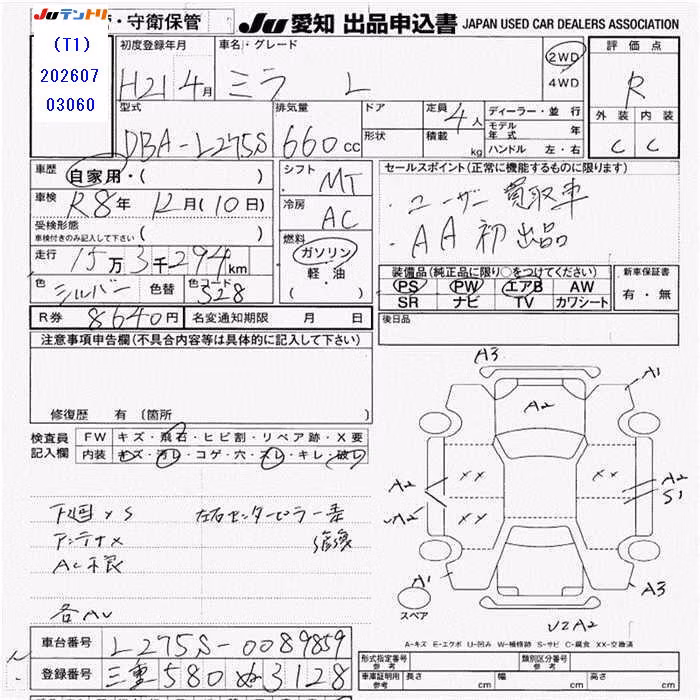 Juテントリ
(T1)
202607
03060
・守衛保管
Ju 愛知 出品申込書 JAPAN USED CAR DEALERS ASSOCIATION
初度登録年月
H21 4月
車名・グレード
ミラ L
2WD
4WD
評価点
R
外装 内装
C C
型式
DBA-L275S
排気量
660cc
ドア
形状
定員 4人
積載 kg
ディーラー・並行
モデル年式 年
ハンドル 左・右
車歴 自家用・( )
車検 R8年 12月(10日)
受検形態
車検付きのみ記入して下さい ( )
走行 15万3千294km
色 シルバー 色替 色コード S28
シフト MT
冷房 AC
燃料
ガソリン
軽・油
( )
セールスポイント(正常に機能するものに限ります)
・ユーザー買取車
・AA初出品
装備品(純正品に限り○をつけてください)
PS PW エアB AW
SR ナビ TV カワシート
新車保証書
有・無
R券 8640円 名変通知期限 月 日
後日品
注意事項申告欄(不具合内容等は具体的に記入して下さい)
修復歴 有(箇所
検査員
記入欄
FW キズ・飛石・ヒビ割・リペア跡・X要
内装 キズ・汚レ・コゲ・穴・スレ・キレ・破レ
下回×S
左右センターピラー一条
アンテナ×
AC不良
各AU
A3
A1
A2
XX
XX
XX
A2
A2
A2
S1
A1
A3
スペア
UZA2
A-キズ E-エクボ U-凹み W-補修跡 S-サビ C-腐食 XX-交換済
車台番号 L275S-0089859
登録番号 三重580ぬ3128
形式指定番号
参考
類別区分番号
参考
車庫証明用
参考
長さ cm 幅 cm 高さ cm